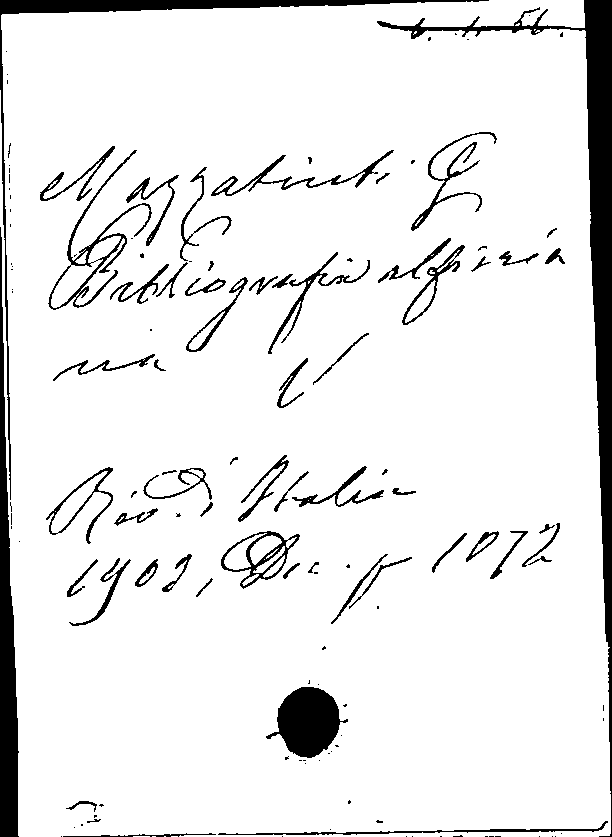 6. 1. 56.
Mazzatinti G
Bibliografia alfieria
na V
Riv. d'Italia
1903, Dic. p 1072